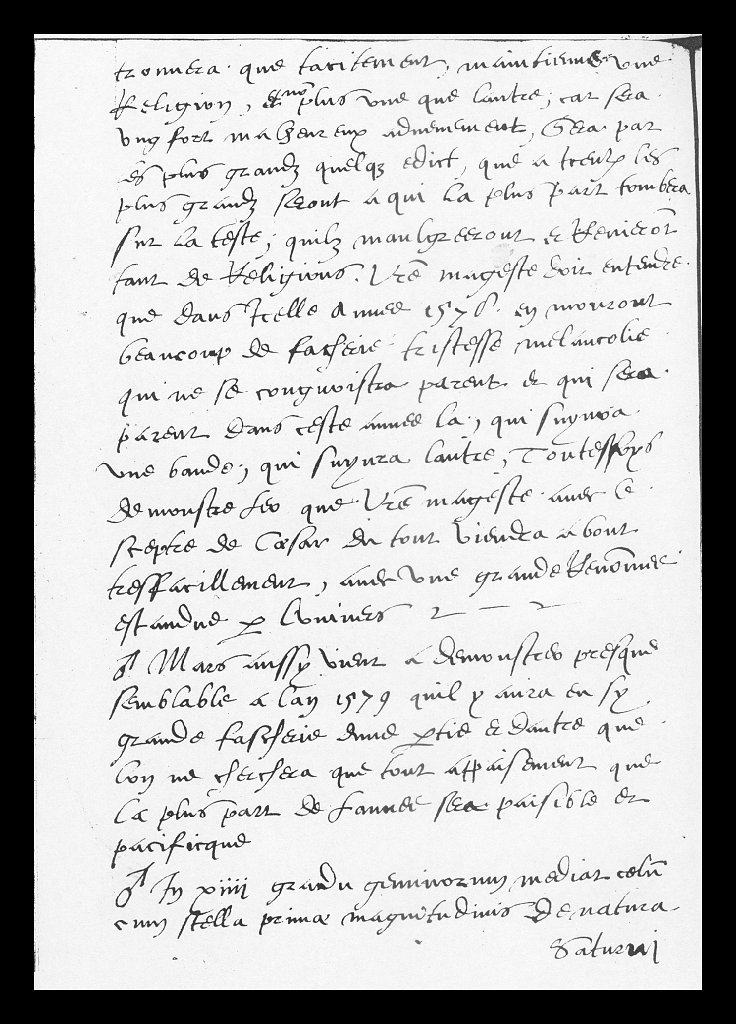 trouvera que tacitement, maintienne une
Religion, et non plus une que lautre, car sera
ung fort malheureux advenement, Sera par
les plus grandz quelqz edict, que a iceulx les
plus grandz seront a qui la plus part tombera
sur la teste, quilz maulgreeront et Renieront
tant de Religions. Vre magesté doit entendre
que dans Icelle Annee 1578. en mouront
beaucoup de facherie tristesse melancolie
qui ne se congnoistra parent et qui sera
parent dans ceste annee la, qui suyvra
une bande, qui suyvra lautre, Toutesfoys
demonstre Leo que Vre magesté avec le
sceptre de Cæsar du tout viendra a bout
tresfacillement, avec une grande Renommee
estandue p lunivers
♂ Mars aussy vient a demonstrer presque
semblable a lan 1579 quil y aura en sy
grande fascherie dune ptie et dautre que
lon ne cherchera que tout appaisement que
la plus part de lannee sera paisible et
pacificque
♂ In xiiii gradu geminorum mediat celū
cum stella primæ magnitudinis de natura
Saturni